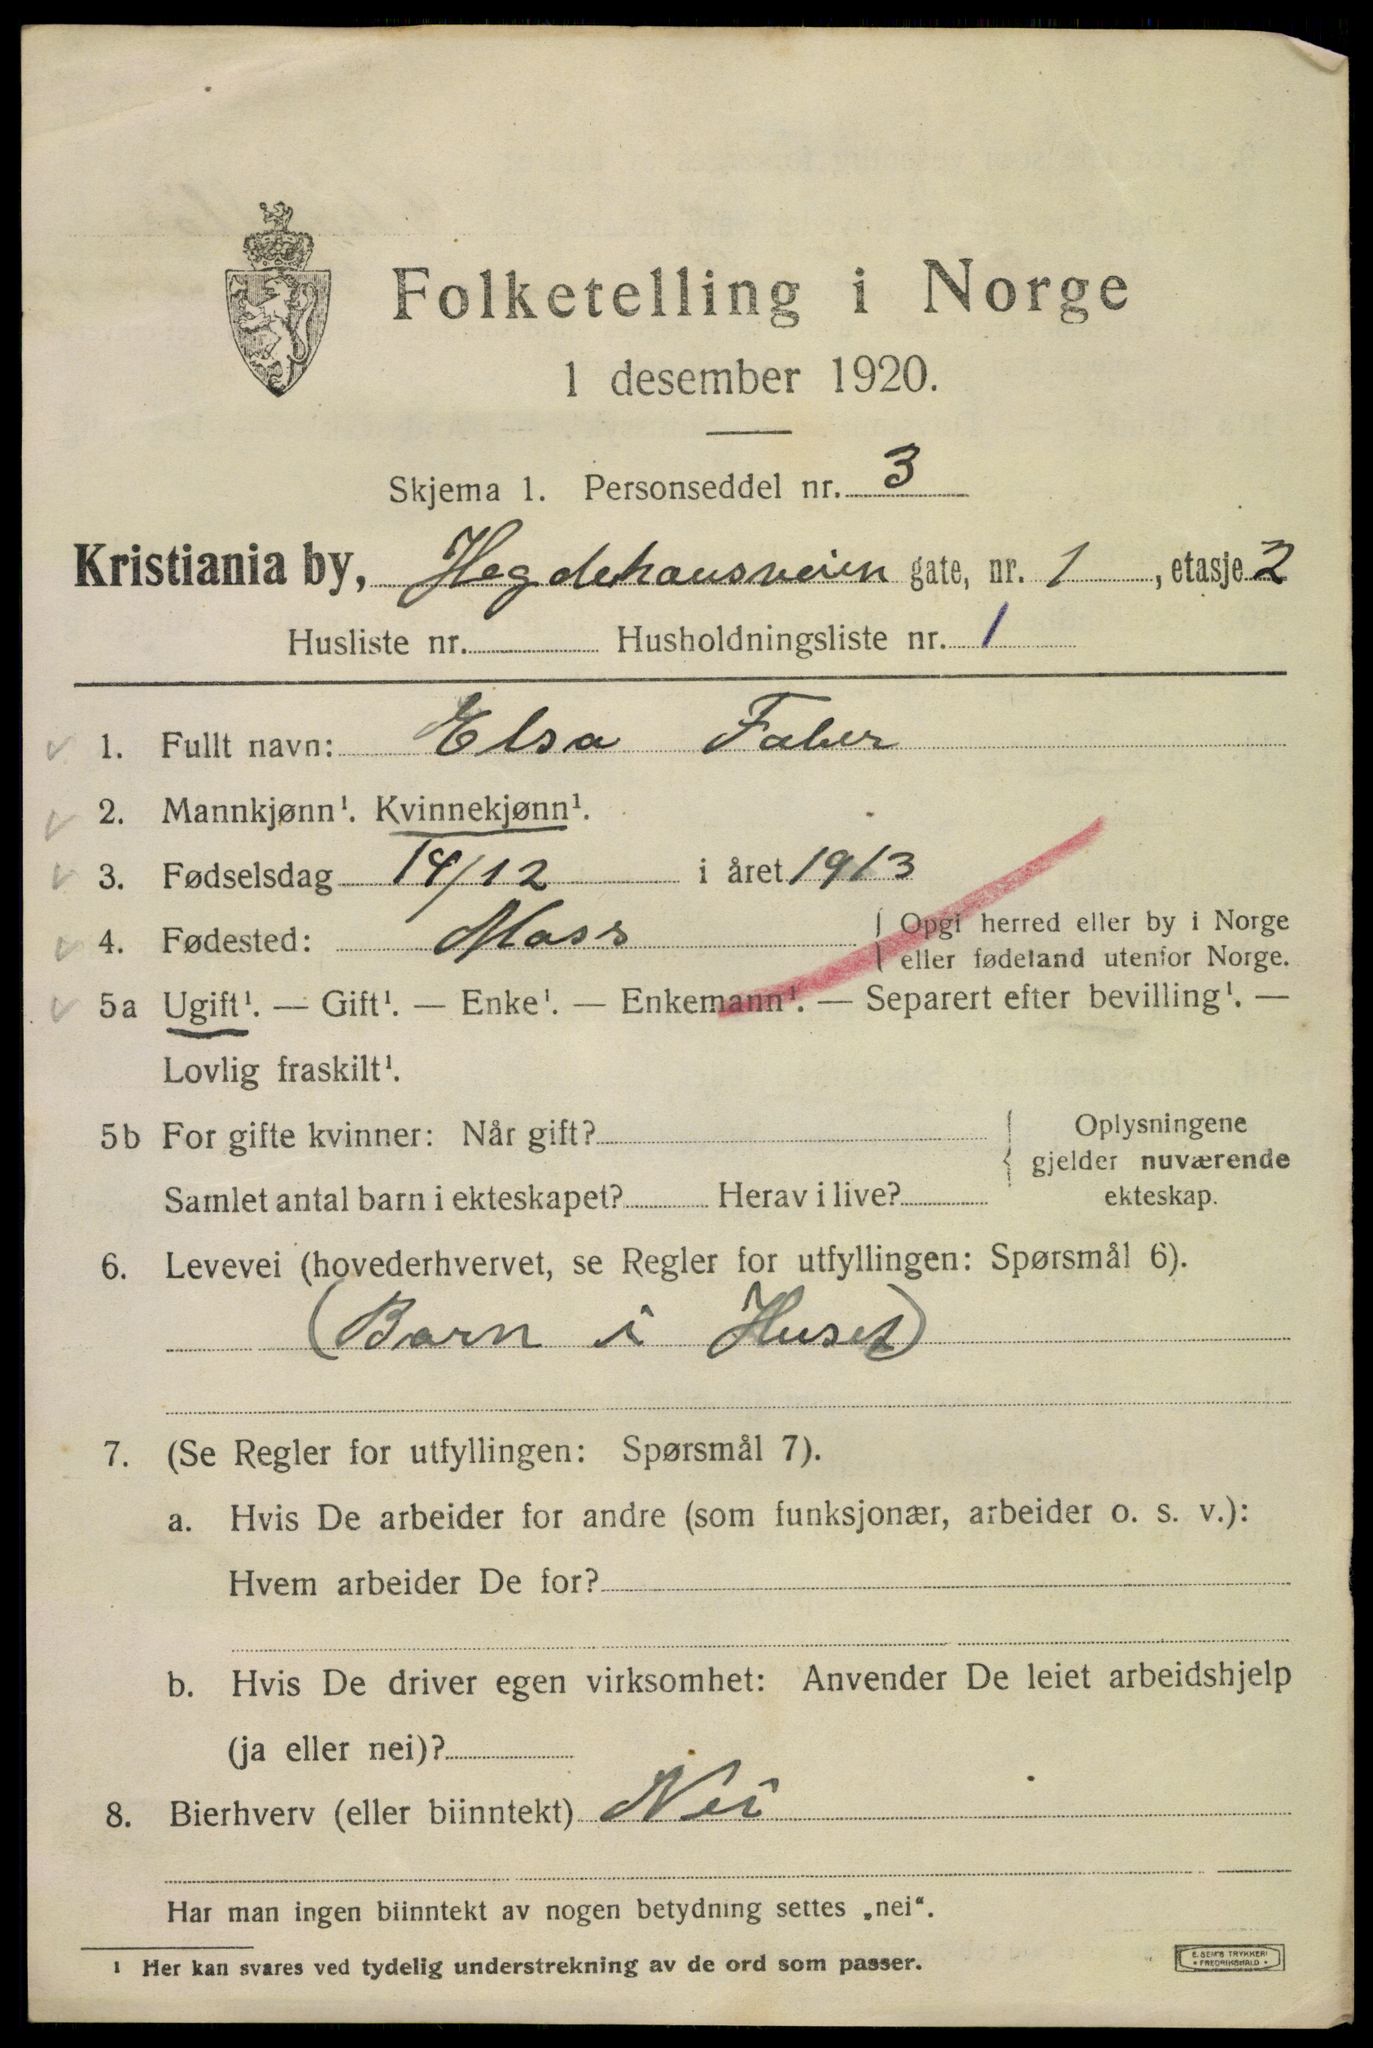 Folketelling i Norge
1 desember 1920.
Skjema 1. Personseddel nr. 3
Kristiania by, Hegdehausveien gate, nr. 1, etasje 2
Husliste nr. Husholdningsliste nr. 1
1. Fullt navn: Elsa Faber
2. Mannkjønn¹. Kvinnekjønn¹.
3. Fødselsdag 14/12 i året 1913
4. Fødested: Moss { Opgi herred eller by i Norge
eller fødeland utenfor Norge.
5a Ugift¹. — Gift¹. — Enke¹. — Enkemann¹. — Separert efter bevilling¹. —
Lovlig fraskilt¹.
5b For gifte kvinner: Når gift? { Oplysningene
gjelder nuværende
Samlet antal barn i ekteskapet? Herav i live? ekteskap.
6. Levevei (hovederhvervet, se Regler for utfyllingen: Spørsmål 6).
(Barn i Huset)
7. (Se Regler for utfyllingen: Spørsmål 7).
a. Hvis De arbeider for andre (som funksjonær, arbeider o. s. v.):
Hvem arbeider De for?
b. Hvis De driver egen virksomhet: Anvender De leiet arbeidshjelp
(ja eller nei)?
8. Bierhverv (eller biinntekt) Nei
Har man ingen biinntekt av nogen betydning settes „nei“.
¹ Her kan svares ved tydelig understrekning av de ord som passer.
E. SEM'S TRYKKERI
• FREDRIKSHALD •